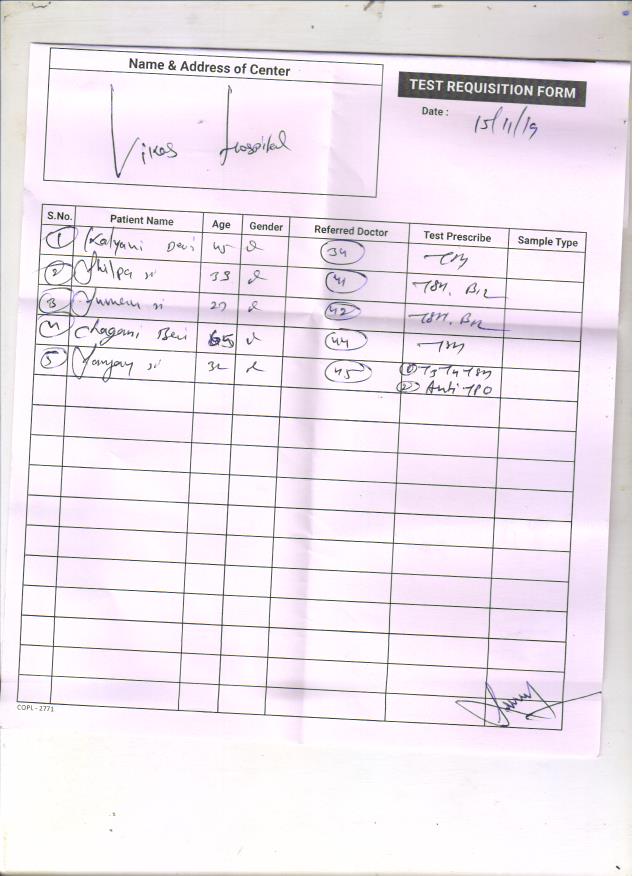 Name & Address of Center
Vikas Hospital
TEST REQUISITION FORM
Date : 15/11/19
S.No. Patient Name Age Gender Referred Doctor Test Prescribe Sample Type
1 Kalyani Devi 45 34
2 Shilpa 33 41 TSH, B12
3 42 TSH, B12
4 Chagani 65 44 TSH
5 32 45 ① T3 T4 TSH
② Anti TPO
COPL - 2771